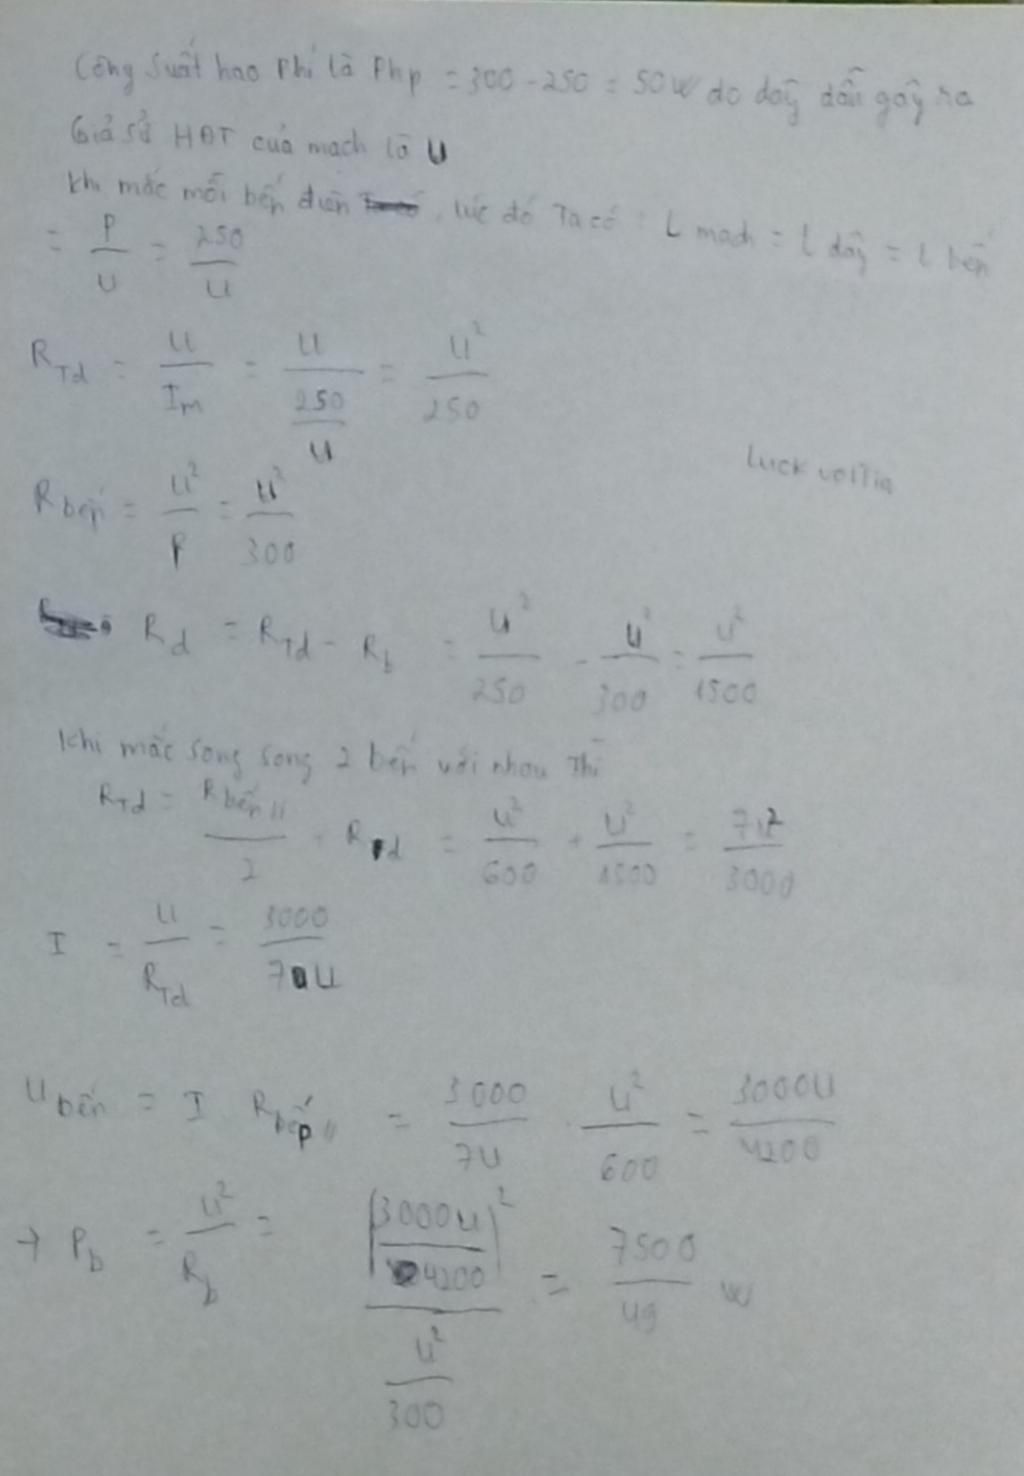 Công suất hao phí là Php = 300 - 250 = 50W do dây dẫn gây ra
Giả sử HĐT của mạch là U
Khi mắc mỗi bếp điện, lúc đó Ta có : I mạch = I dây = I bếp
= P/U = 250/U
R_Td = U/I_m = U/(250/U) = U²/250
Luck voltia
R bếp = U²/P = U²/300
R_d = R_Td - R_b = U²/250 - U²/300 = U²/1500
Khi mắc song song 2 bếp với nhau thì
R_Td = R bếp 11/2 + R_d = U²/600 + U²/1500 = 7U²/3000
I = U/R_Td = 3000/7U
U bếp = I R bếp 11 = 3000/7U . U²/600 = 3000U/4200
→ P_b = U²/R_b = (3000U/4200)²/(U²/300) = 7500/49 W